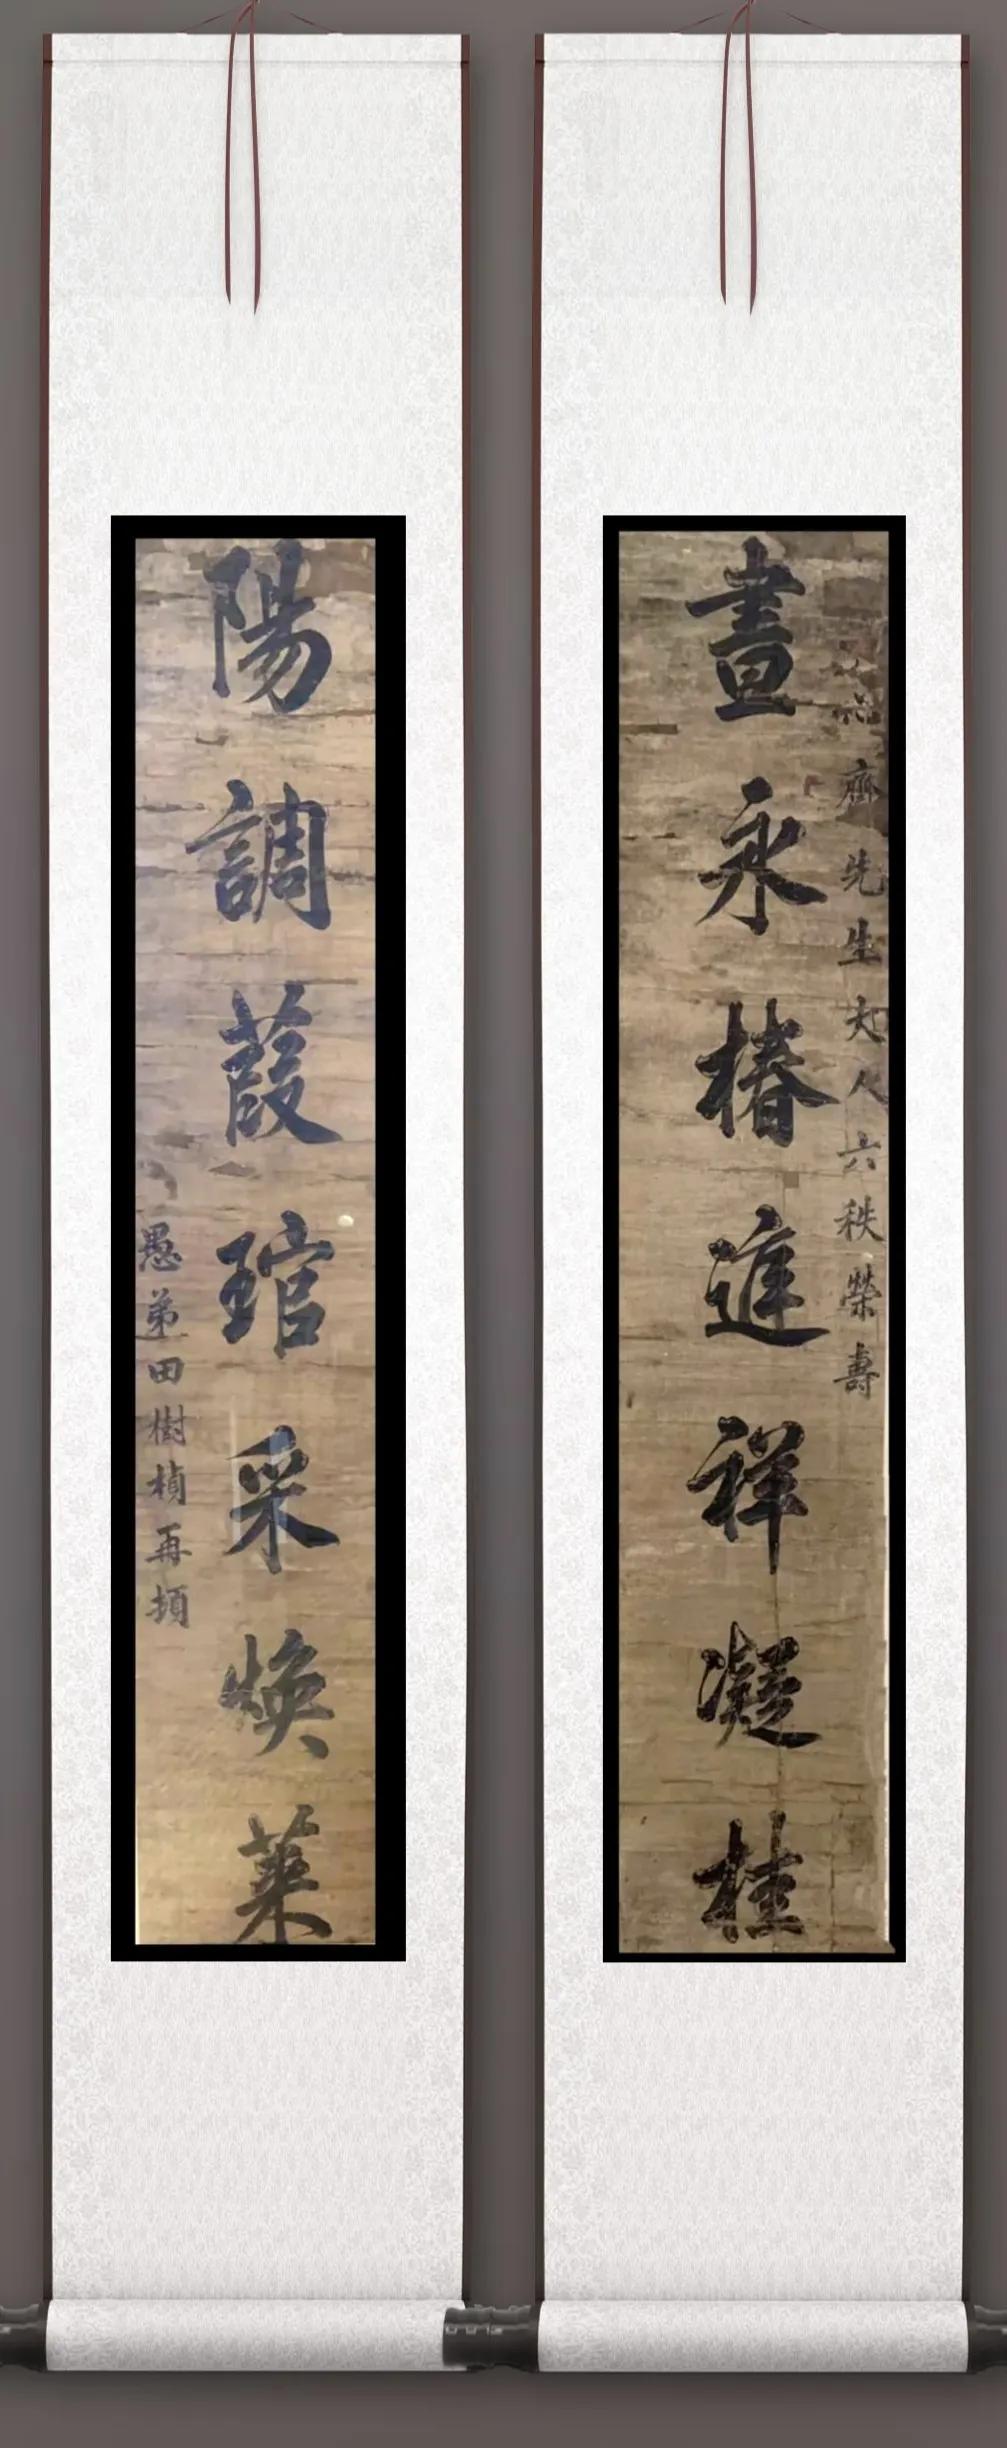 品齋先生大人六秩榮壽
晝永椿進祥凝桂
陽調葭琯采煥萊
愚弟田樹楨再頓